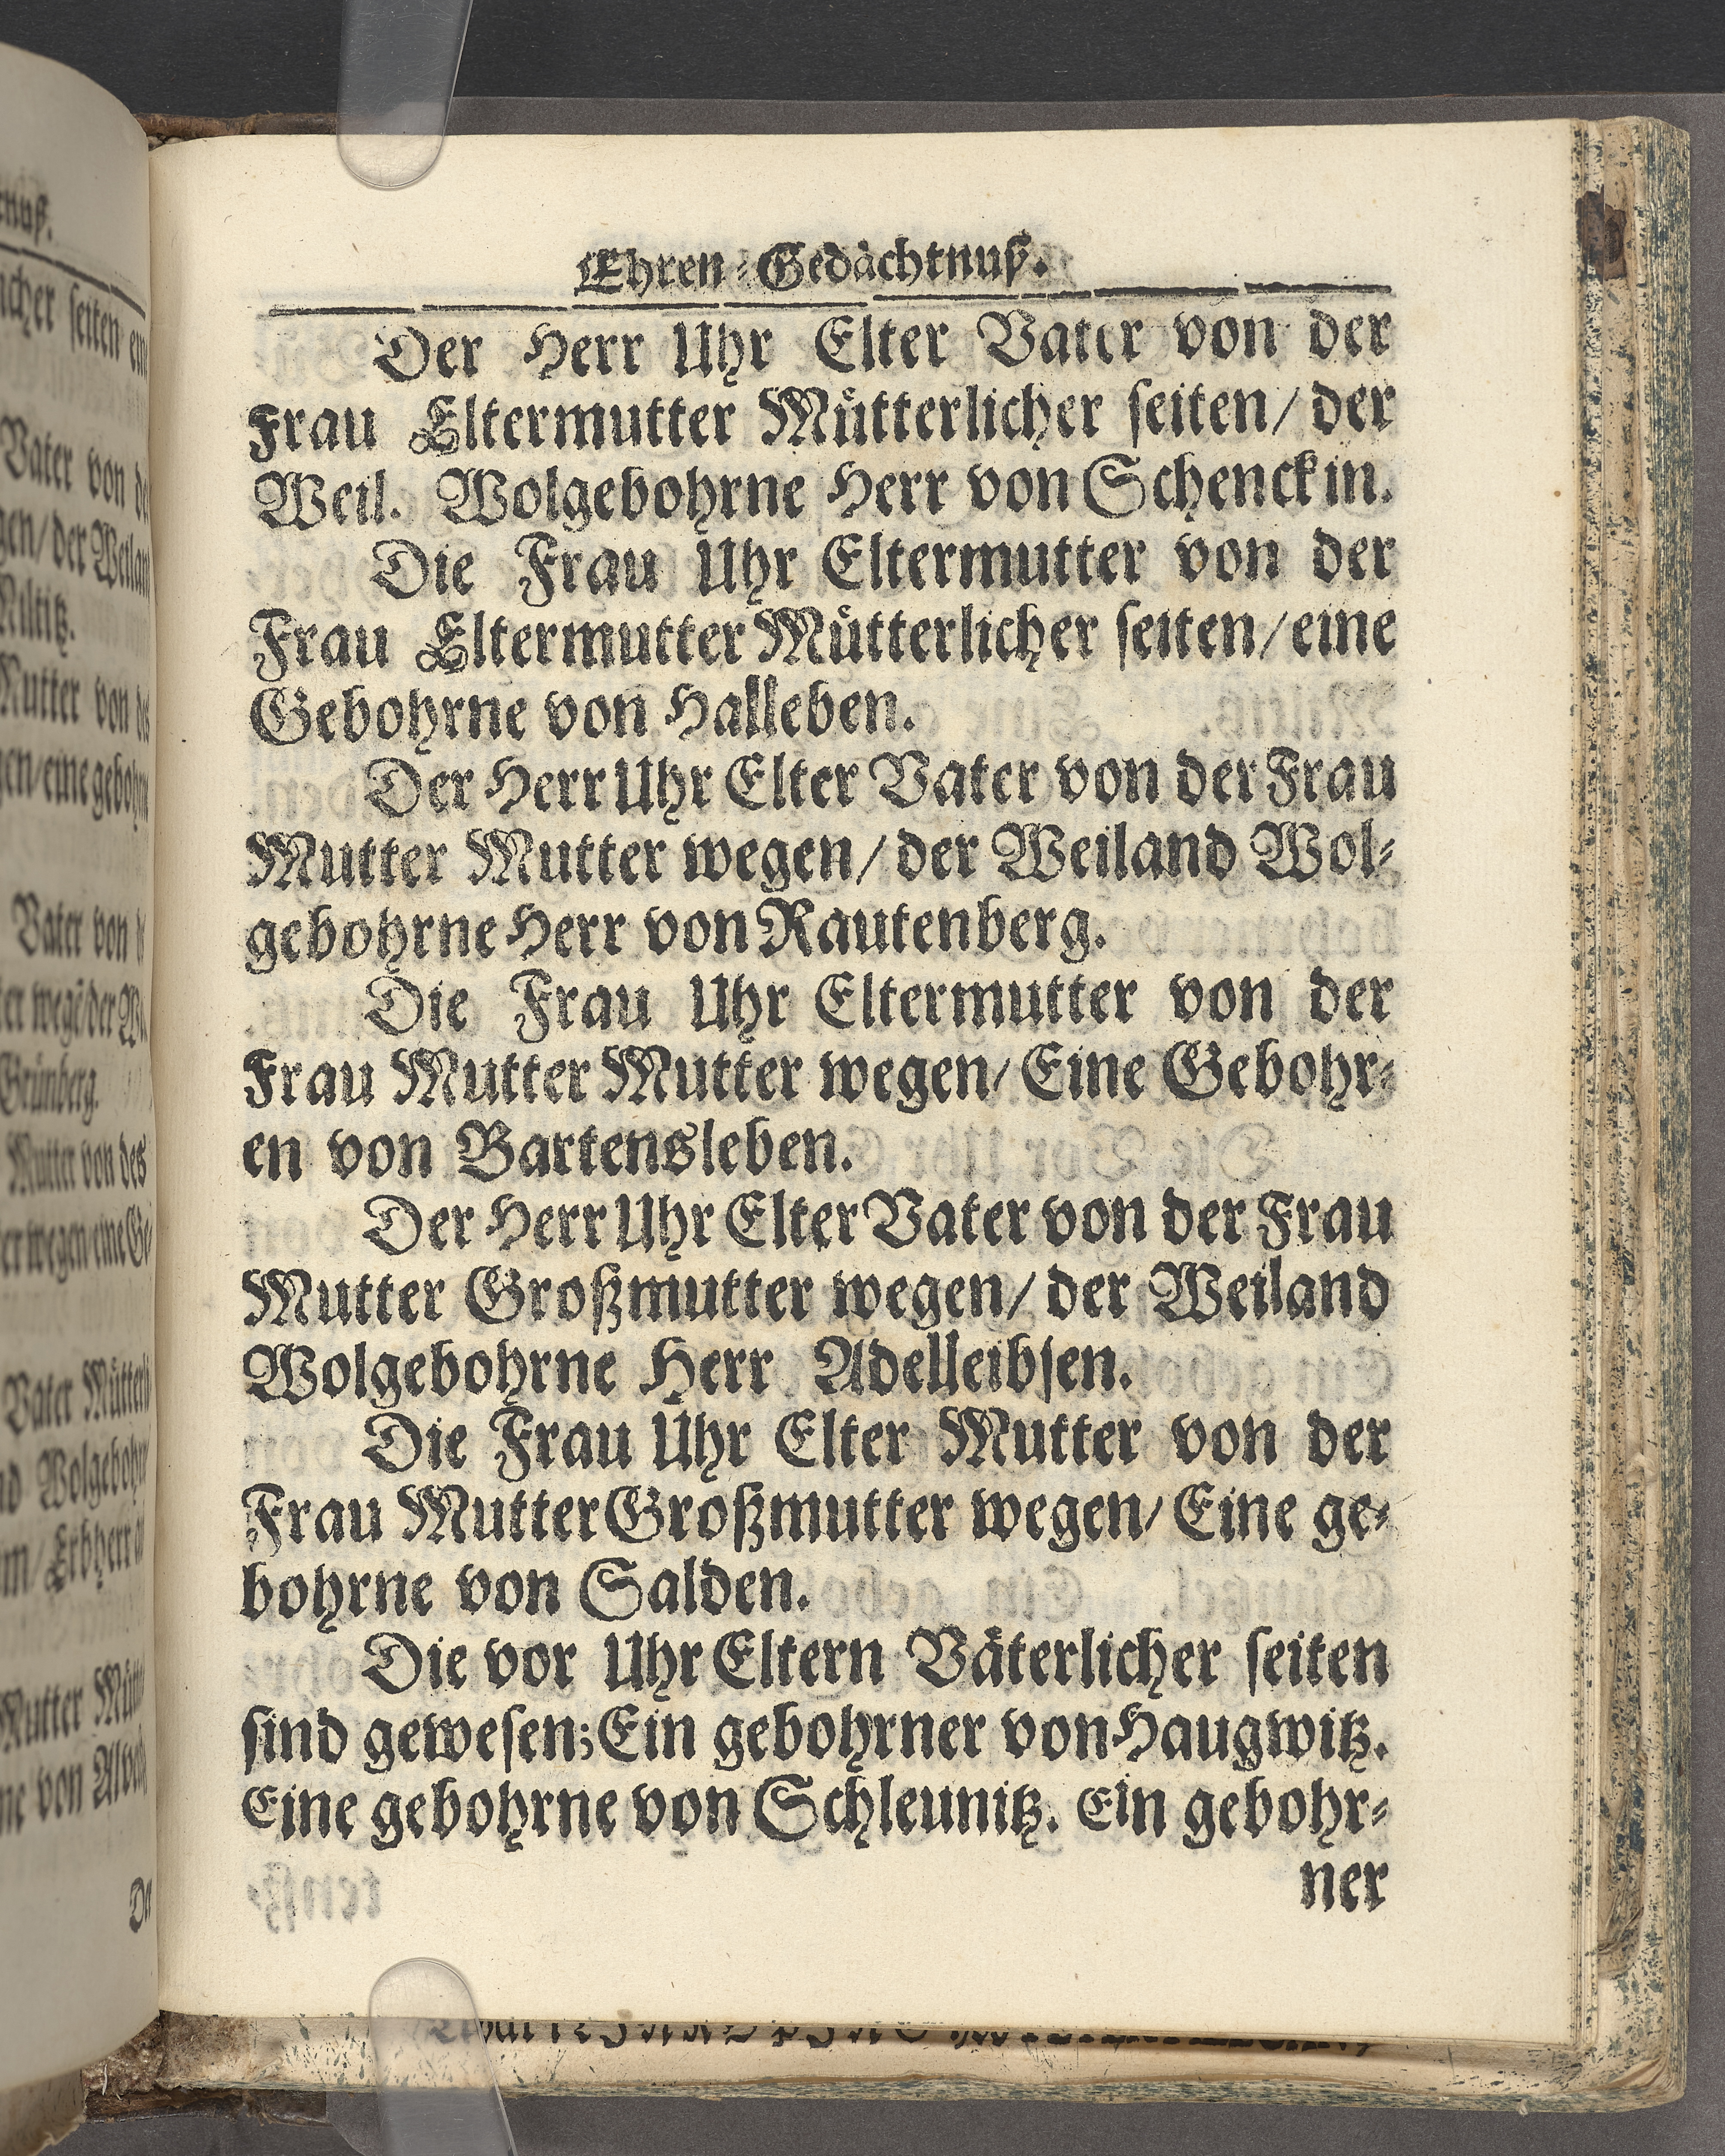 Ehren-Gedächtnuß.
Der Herr Uhr Elter Vater von der
Frau Eltermutter Mütterlicher seiten/ der
Weil. Wolgebohrne Herr von Schenck in.
Die Frau Uhr Eltermutter von der
Frau Eltermutter Mütterlicher seiten/ eine
Gebohrne von Halleben.
Der Herr Uhr Elter Vater von der Frau
Mutter Mutter wegen/ der Weiland Wol-
gebohrne Herr von Rautenberg.
Die Frau Uhr Eltermutter von der
Frau Mutter Mutter wegen/ Eine Gebohr-
en von Bartensleben.
Der Herr Uhr Elter Vater von der Frau
Mutter Großmutter wegen/ der Weiland
Wolgebohrne Herr Adelleibsen.
Die Frau Uhr Elter Mutter von der
Frau Mutter Großmutter wegen/ Eine ge-
bohrne von Salden.
Die vor Uhr Eltern Väterlicher seiten
sind gewesen; Ein gebohrner von Haugwitz.
Eine gebohrne von Schleunitz. Ein gebohr-
ner